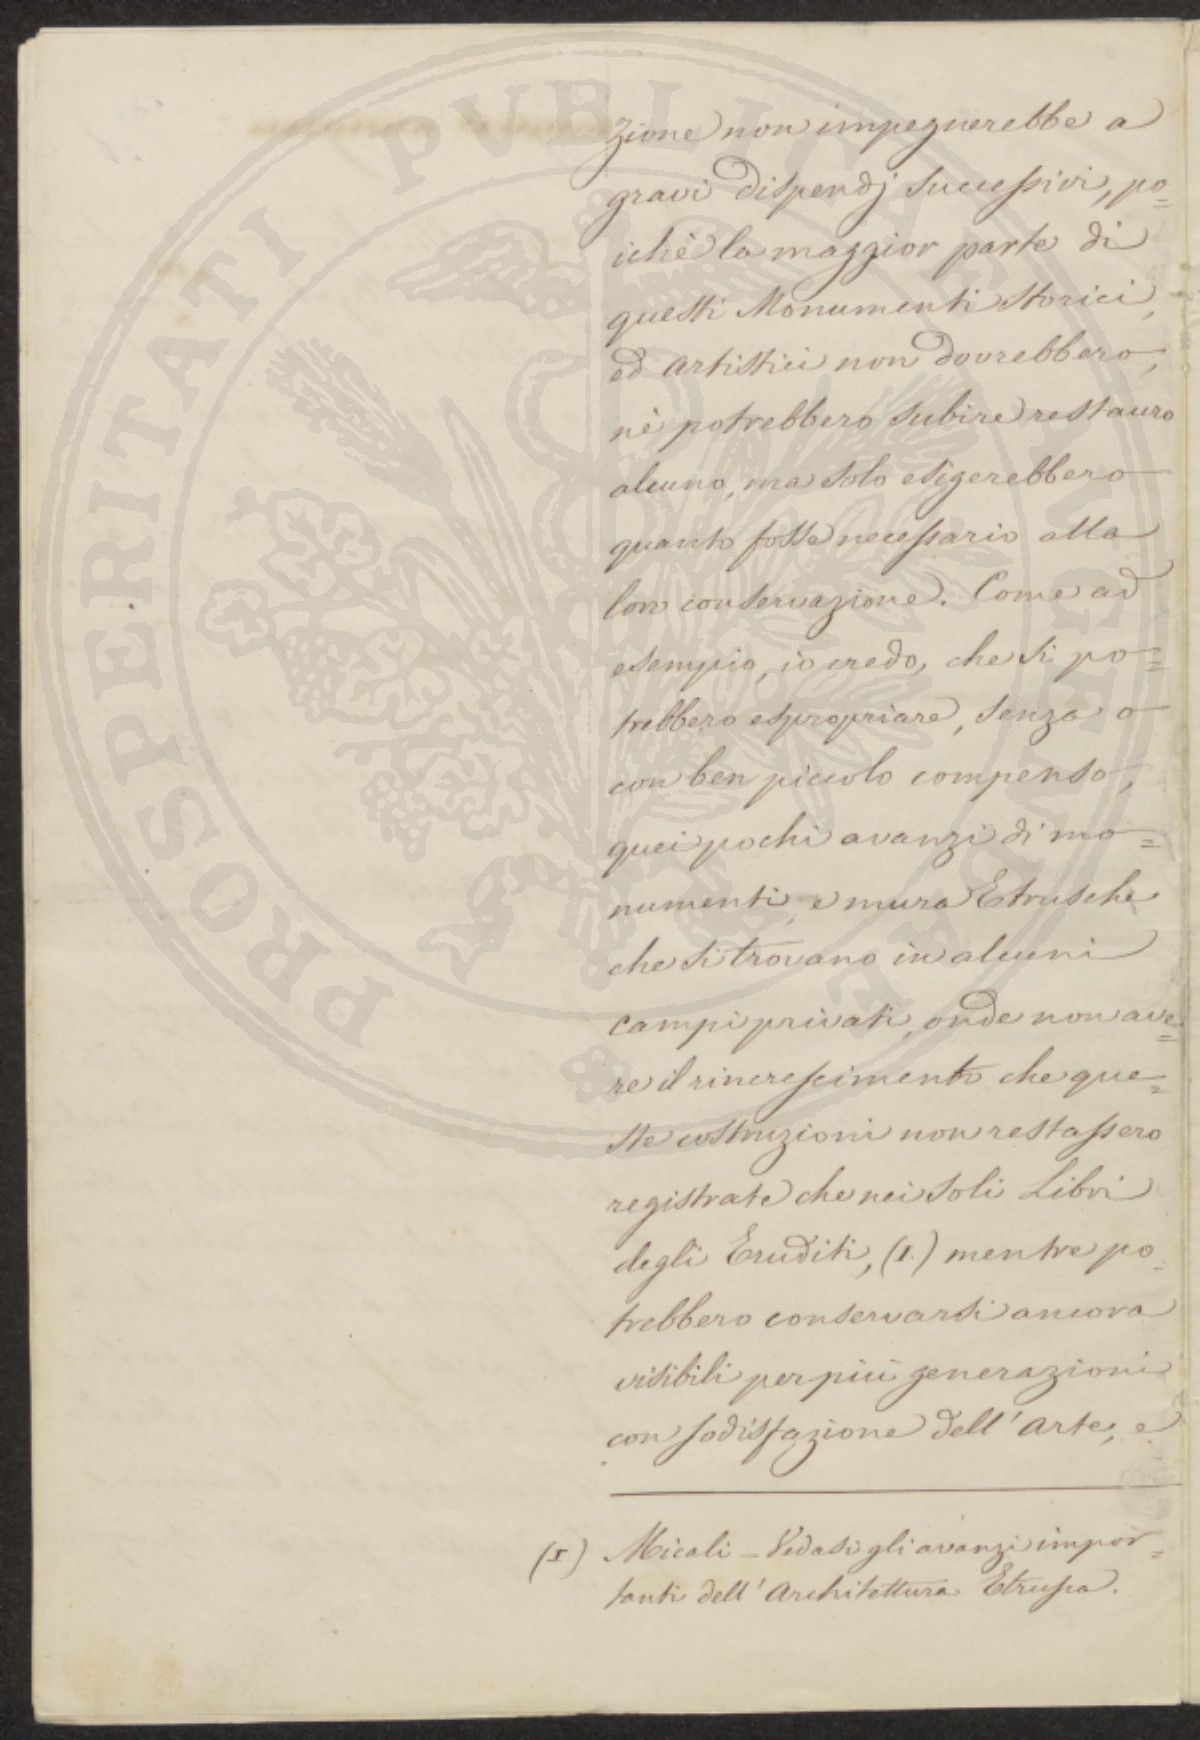 zione non impegnerebbe a
gravi dispendj successivi, po=
ichè la maggior parte di
questi Monumenti storici,
ed artistici non dovrebbero,
nè potrebbero subire restauro
alcuno, ma solo esigerebbero
quanto fosse necessario alla
loro conservazione. Come ad
esempio, io credo, che si po=
trebbero espropriare, senza o
con ben piccolo compenso,
quei pochi avanzi di mo=
numenti, e mura Etrusche
che si trovano in alcuni
campi privati, onde non ave=
re il rincrescimento che que=
ste costruzioni non restassero
registrate che nei soli Libri
degli Eruditi, (1.) mentre po=
trebbero conservarsi ancora
visibili per più generazioni
con sodisfazione dell' arte, e
(1.) Micali – Vedasi gli avanzi impor=
tanti dell' Architettura Etrusca.
PROSPERITATI PVBLICAE AVGENDAE